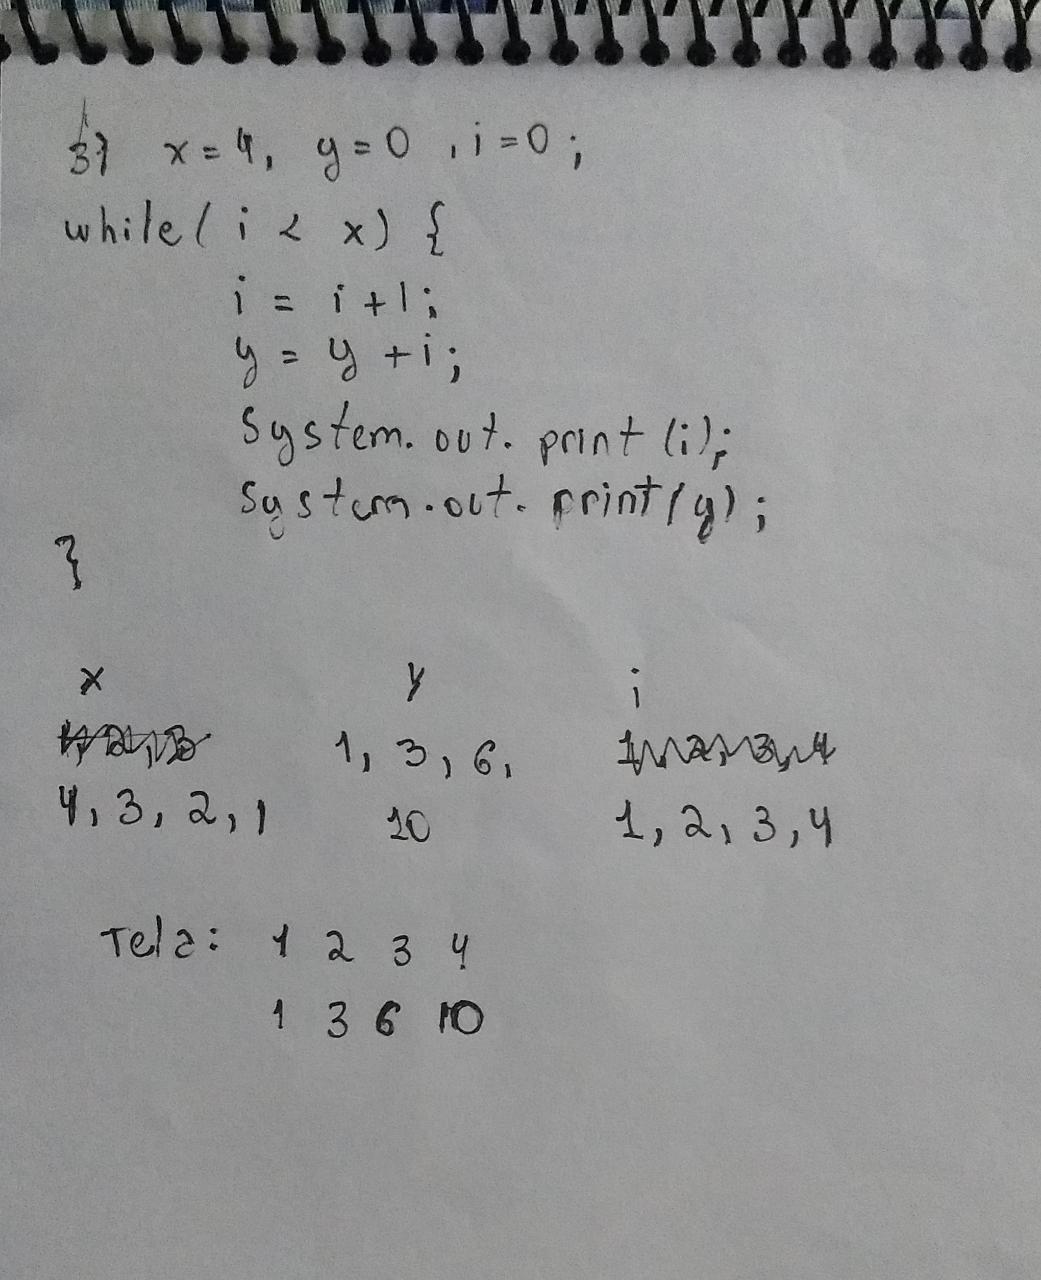 3) x = 4, y = 0 , i = 0 ;
while ( i < x ) {
i = i + 1 ;
y = y + i ;
System. out. print (i);
System. out. print (y) ;
}
x y i
1, 3, 6, 
4, 3, 2, 1 10 1, 2, 3, 4
Tela: 1 2 3 4
1 3 6 10